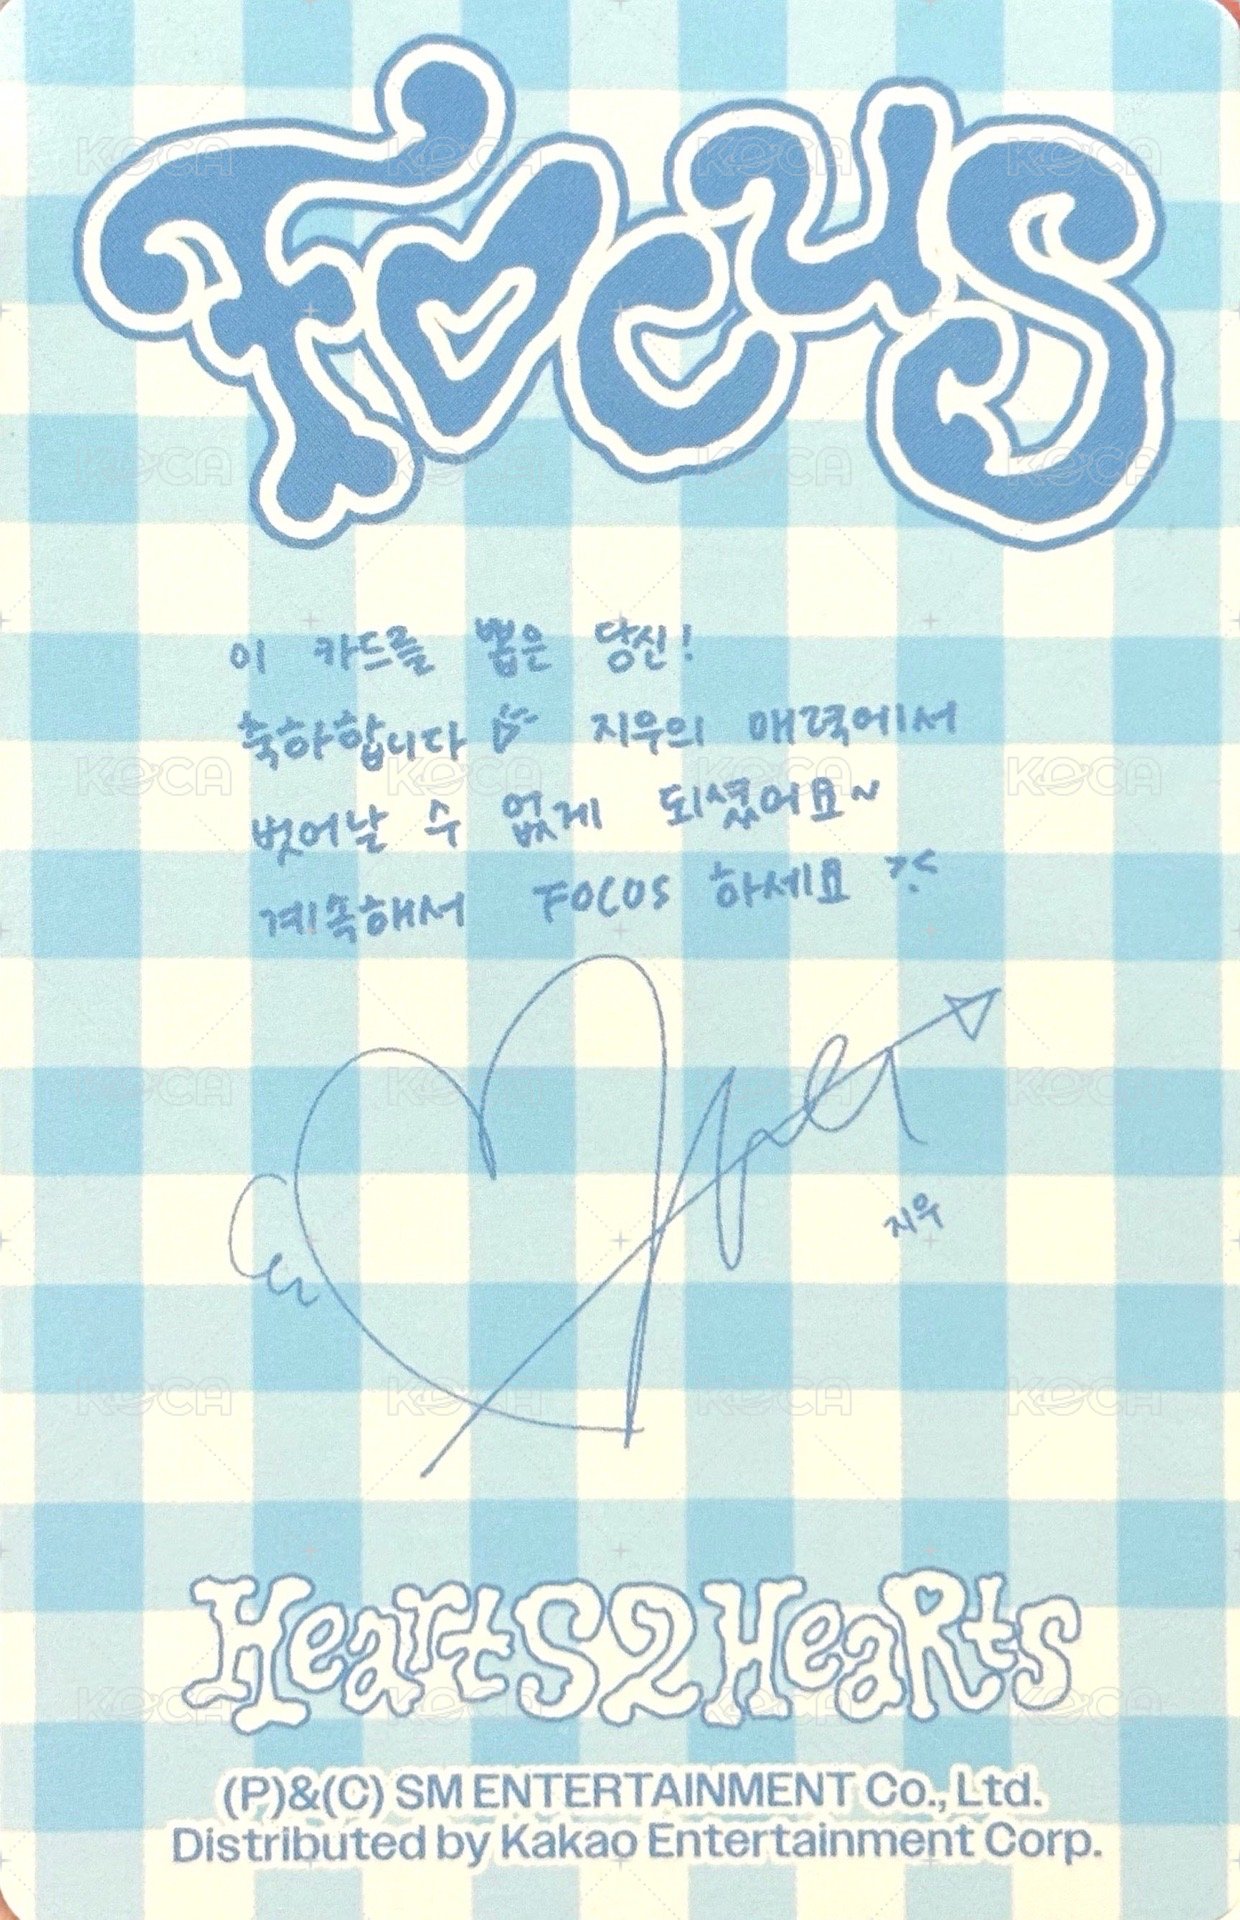 FOCUS
이 카드를 뽑은 당신!
축하합니다 지우의 매력에서
벗어날 수 없게 되셨어요~
계속해서 FOCUS 하세요 >.<
지우
Hearts2Hearts
(P)&(C) SM ENTERTAINMENT Co., Ltd.
Distributed by Kakao Entertainment Corp.
KOCA